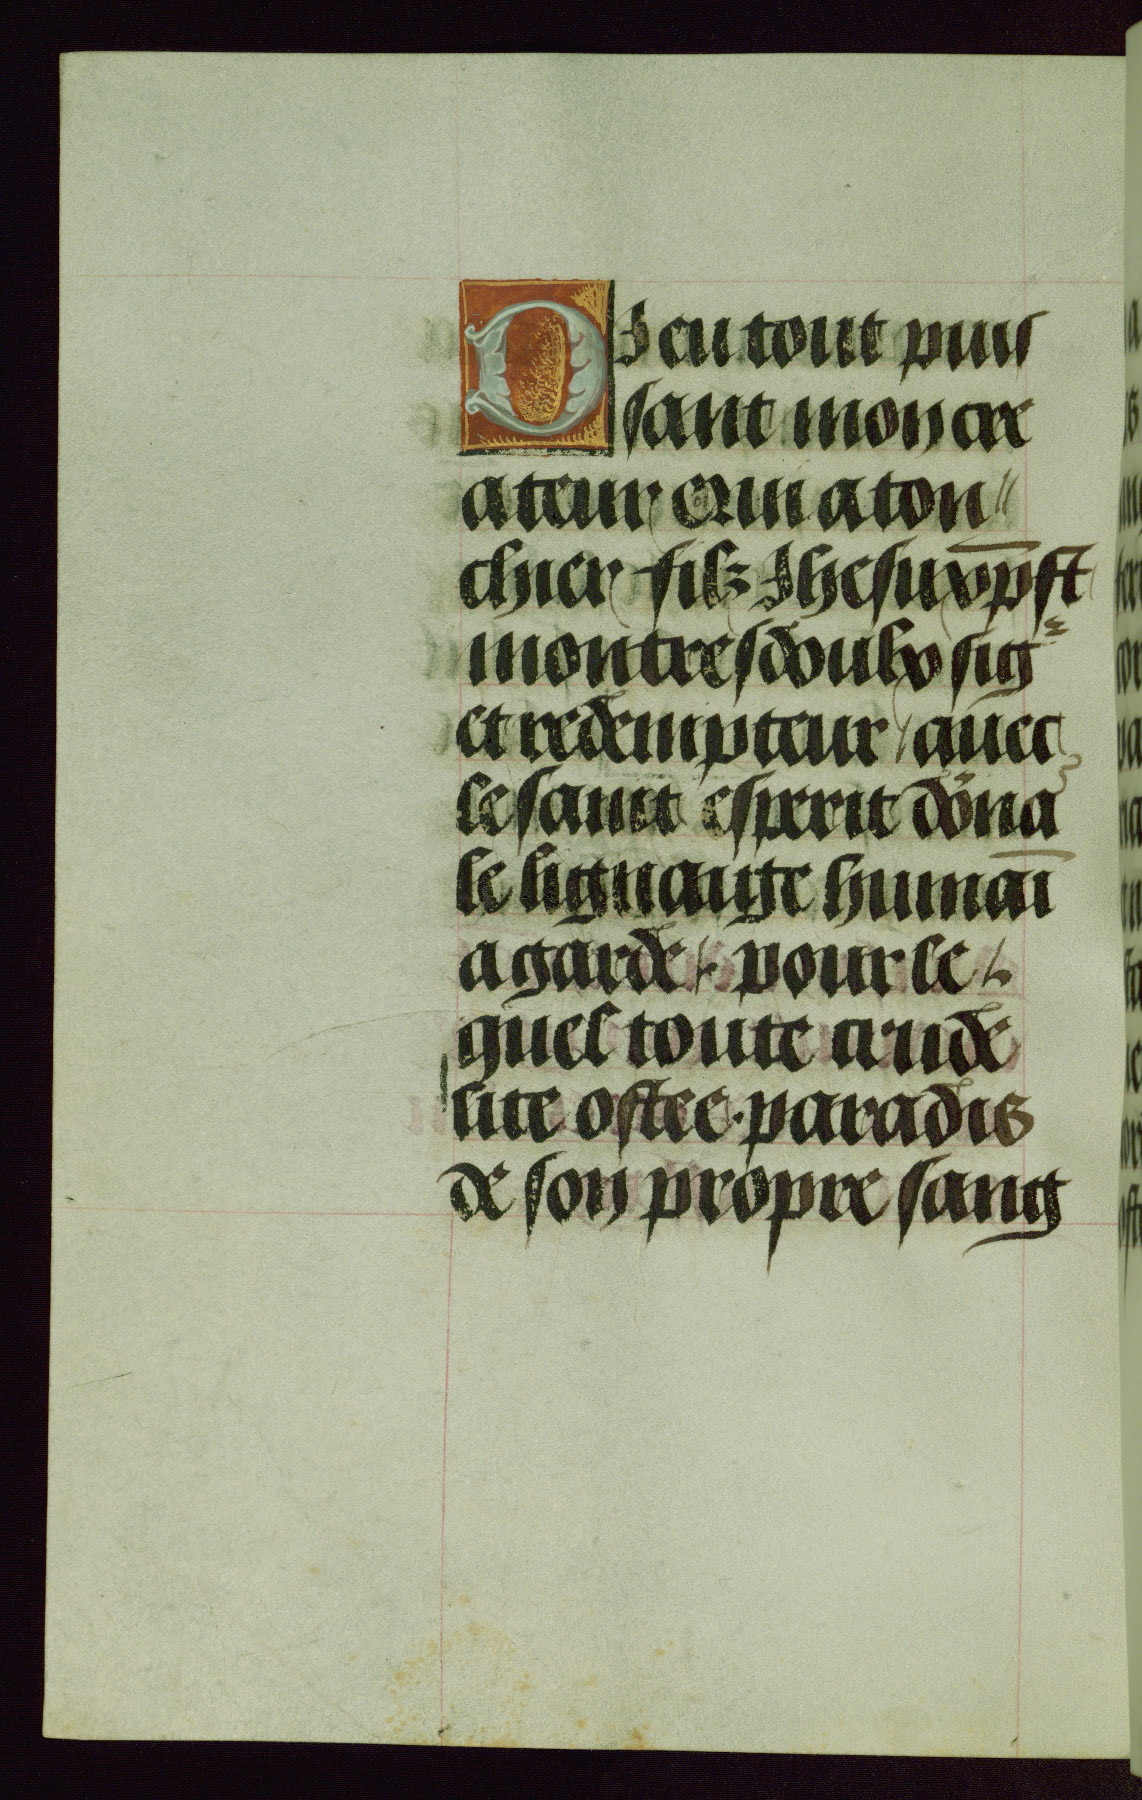 DIeu tout puis
sant mon cre
ateur Qui a ton
chier filz Ihesuxp̄st
mon tresdoulx sigᵉ
et redempteur / auec
le saint esperit dōna
le lignaige humaī
a garde / pour le
quel toute crude
lite ostee . paradis
de son propre sang